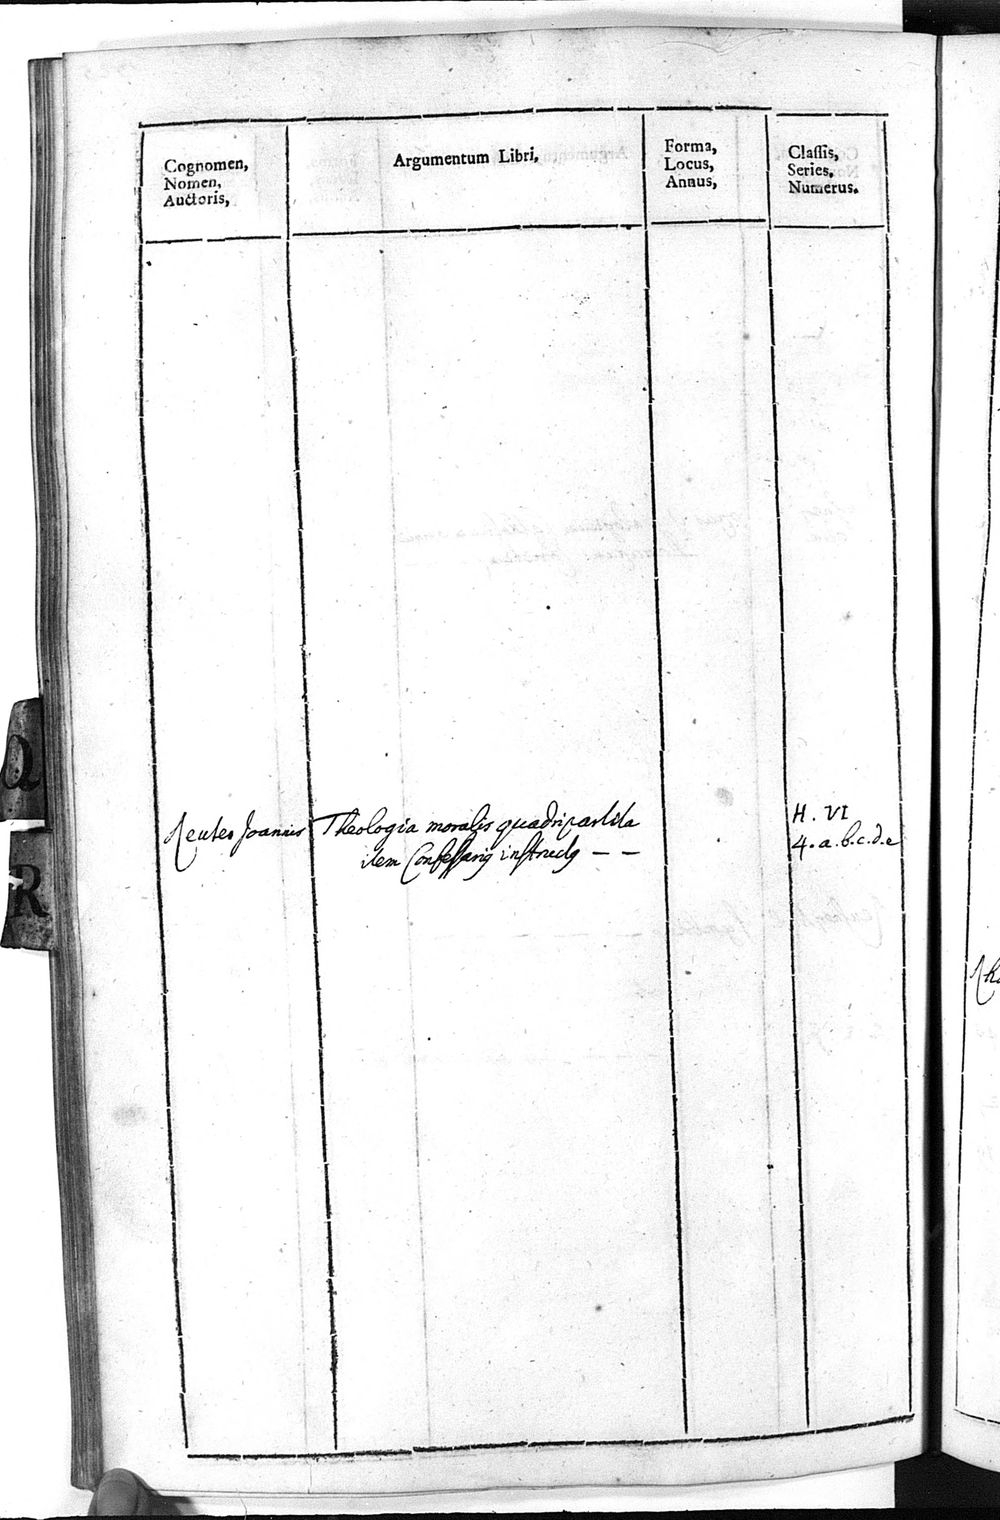 Cognomen,
Nomen,
Auctoris,
Argumentum Libri,
Forma,
Locus,
Annus,
Classis,
Series,
Numerus.
Reuter Joannes
Theologia moralis quadripartita
item Confessarig instructg — —
H. VI
4. a. b. c. d. e
Q
R